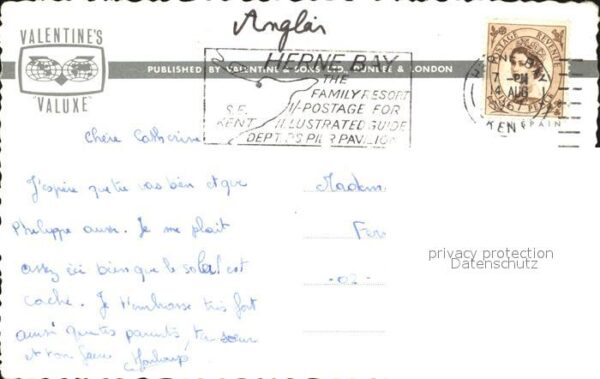 Anglais
VALENTINE'S
"VALUXE"
PUBLISHED BY VALENTINE & SONS LTD., DUNDEE & LONDON
HERNE BAY
THE
FAMILY RESORT
S.E. 1/- POSTAGE FOR
KENT ILLUSTRATED GUIDE
DEPT P.S PIER PAVILION
POSTAGE REVENUE
7 - PM
AUG
KENT
Chère Catherine
J'espère que tu vas bien et que
Philippe aussi. Je me plait
assez ici bien que le soleil est
caché. Je t'embrasse très fort
ainsi que tes parents, ta soeur
et ton frère
Madem
Fer
- 02 -
privacy protection
Datenschutz